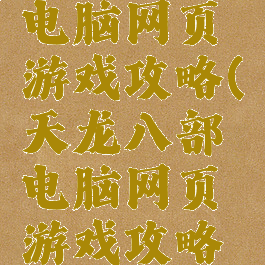 电脑网页
游戏攻略(
天龙八部
电脑网页
游戏攻略